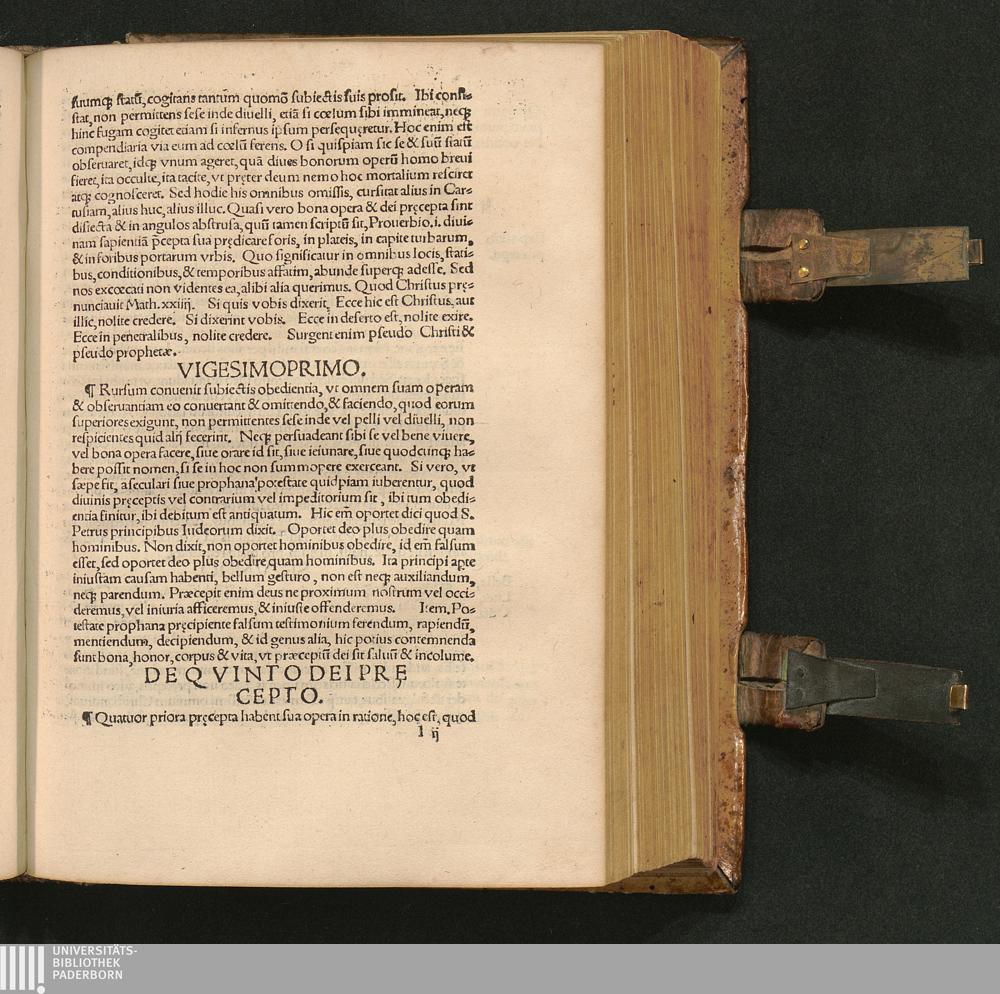 suumq; statū, cogitans tantum quomō subiectis suis prosit. Ibi consi-
stat, non permittens sese inde diuelli, etiā si cœlum sibi immineat, neq;
hinc fugam cogitet etiam si infernus ipsum persequęretur. Hoc enim est
compendiaria via eum ad cœlū ferens. O si quispiam sic se & suū statū
obseruaret, idq; vnum ageret, quā diues bonorum operū homo breui
fieret, ita occulte, ita tacite, vt pręter deum nemo hoc mortalium resciret
atq; cognosceret. Sed hodie his omnibus omissis, cursitat alius in Car-
tusiam, alius huc, alius illuc. Quasi vero bona opera & dei pręcepta sint
disiecta & in angulos abstrusa, quū tamen scriptū sit, Prouerbio.i. diui-
nam sapientiā p̄cepta sua prędicare foris, in plateis, in capite turbarum,
& in foribus portarum vrbis. Quo significatur in omnibus locis, stati-
bus, conditionibus, & temporibus affatim, abunde superq; adesse. Sed
nos excœcati non videntes ea, alibi alia querimus. Quod Christus prę-
nunciauit Math.xxiiij. Si quis vobis dixerit, Ecce hic est Christus, aut
illic, nolite credere. Si dixerint vobis. Ecce in deserto est, nolite exire.
Ecce in penetralibus, nolite credere. Surgent enim pseudo Christi &
pseudo prophetæ.
VIGESIMOPRIMO.
¶ Rursum conuenit subiectis obedientia, vt omnem suam operam
& obseruantiam eo conuertant & omittendo, & faciendo, quod eorum
superiores exigunt, non permittentes sese inde vel pelli vel diuelli, non
respicientes quid alij fecerint. Neq; persuadeant sibi se vel bene viuere,
vel bona opera facere, siue orare id sit, siue ieiunare, siue quodcunq; ha-
bere possit nomen, si se in hoc non summopere exerceant. Si vero, vt
sæpe fit, a seculari siue prophana potestate quidpiam iuberentur, quod
diuinis pręceptis vel contrarium vel impeditorium sit, ibi tum obedi-
entia finitur, ibi debitum est antiquatum. Hic em̄ oportet dici quod S.
Petrus principibus Iudeorum dixit. Oportet deo plus obedire quam
hominibus. Non dixit, non oportet hominibus obedire, id em̄ falsum
esset, sed oportet deo plus obedire quam hominibus. Ita principi apte
iniustam causam habenti, bellum gesturo, non est neq; auxiliandum,
neq; parendum. Præcepit enim deus ne proximum nostrum vel occi-
deremus, vel iniuria afficeremus, & iniuste offenderemus. Item. Po-
testate prophana pręcipiente falsum testimonium ferendum, rapiendū,
mentiendum, decipiendum, & id genus alia, hic potius contemnenda
sunt bona, honor, corpus & vita, vt præceptū dei sit saluū & incolume.
DE QVINTO DEI PRĘ
CEPTO.
¶ Quatuor priora pręcepta habent sua opera in ratione, hoc est, quod
l ij
UNIVERSITÄTS-
BIBLIOTHEK
PADERBORN